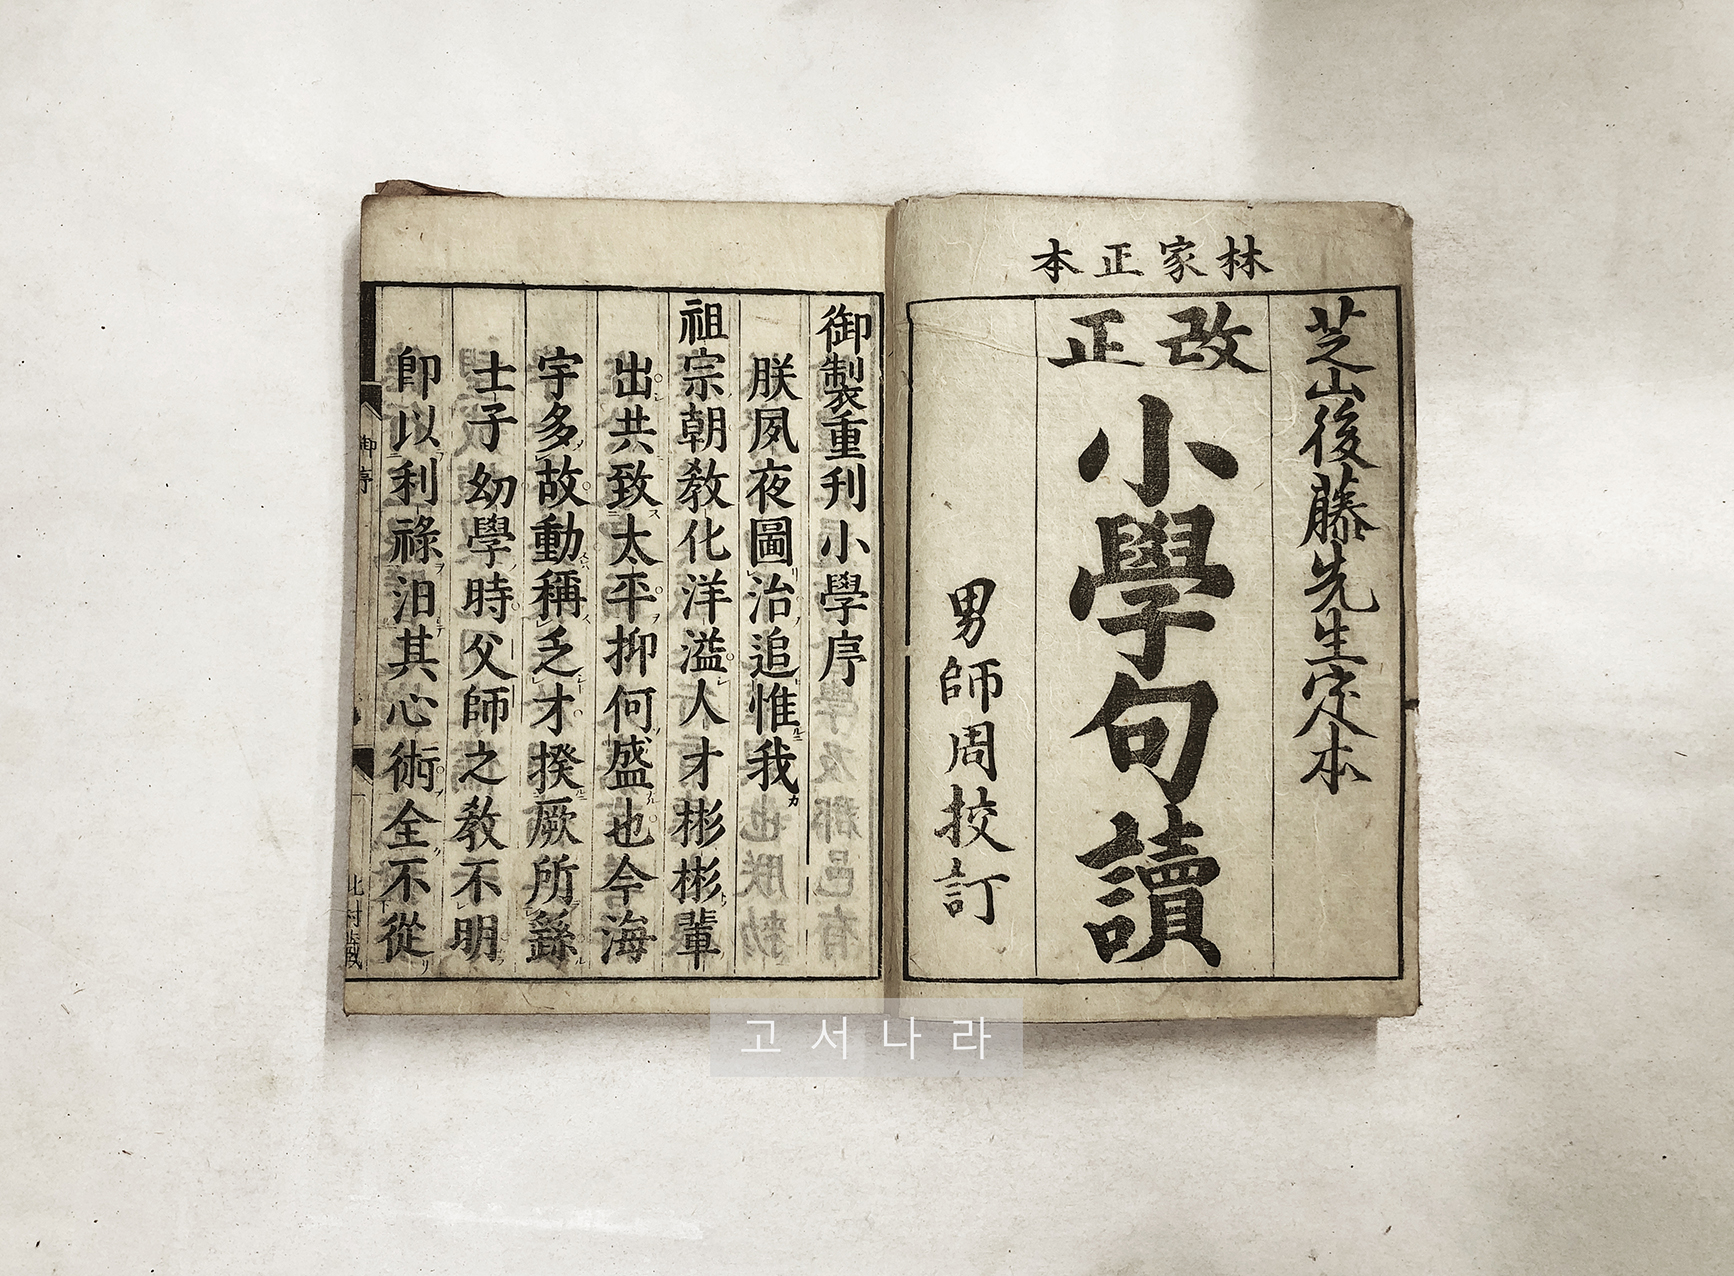 林家正本
芝山後藤先生定本
改正
小學句讀
男師周挍訂
御製重刋小學序
朕夙夜圖治追惟我
祖宗朝敎化洋溢人才彬彬輩
出共致太平抑何盛也今海
宇多故動稱乏才揆厥所繇
士子幼學時父師之敎不明
卽以利祿汨其心術全不從
御序
北村藏
고서나라